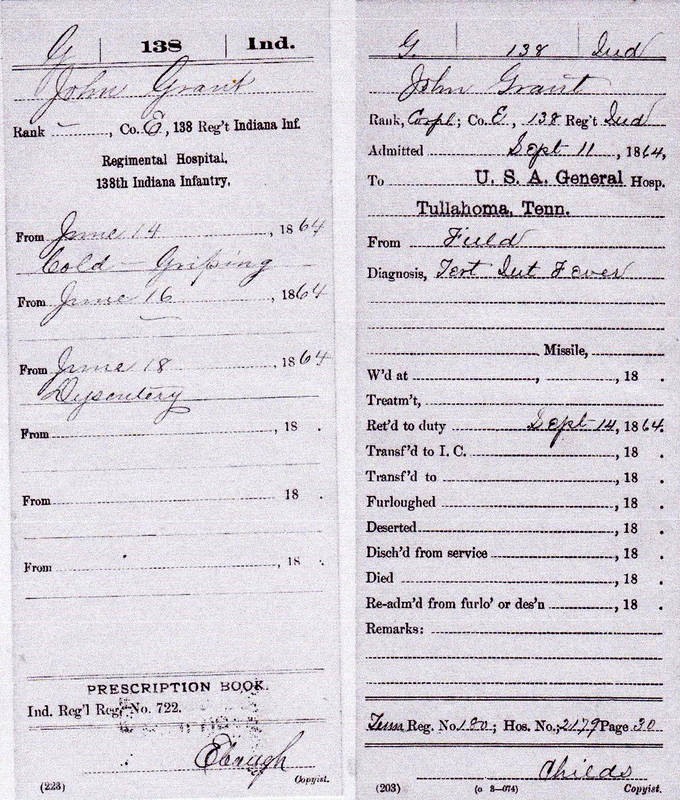 G | 138 | Ind.
John Grant
Rank —, Co. E, 138 Reg't Indiana Inf.
Regimental Hospital,
138th Indiana Infantry,
From June 14, 1864
Cold – Gripping
From June 16, 1864
From June 18, 1864
Dysentery
From, 18 .
From 18 .
From, 18 .
PRESCRIPTION BOOK.
Ind. Reg'l Reg. No. 722.
Ebaugh
Copyist.
(223)
G. | 138 | Ind
John Grant
Rank, Corpl; Co. E, 138 Reg't Ind
Admitted Sept 11, 1864,
To U. S. A. General Hosp.
Tullahoma, Tenn.
From Field
Diagnosis, Tert Int Fever
Missile,
W'd at , , 18 .
Treatm't,
Ret'd to duty Sept 14, 1864.
Transf'd to I. C. , 18 .
Transf'd to , 18 .
Furloughed , 18 .
Deserted , 18 .
Disch'd from service , 18 .
Died , 18 .
Re-adm'd from furlo' or des'n , 18 .
Remarks:
Tenn Reg. No. 180; Hos. No.; 2179 Page 30
Childs
(203) (o 3—074) Copyist.